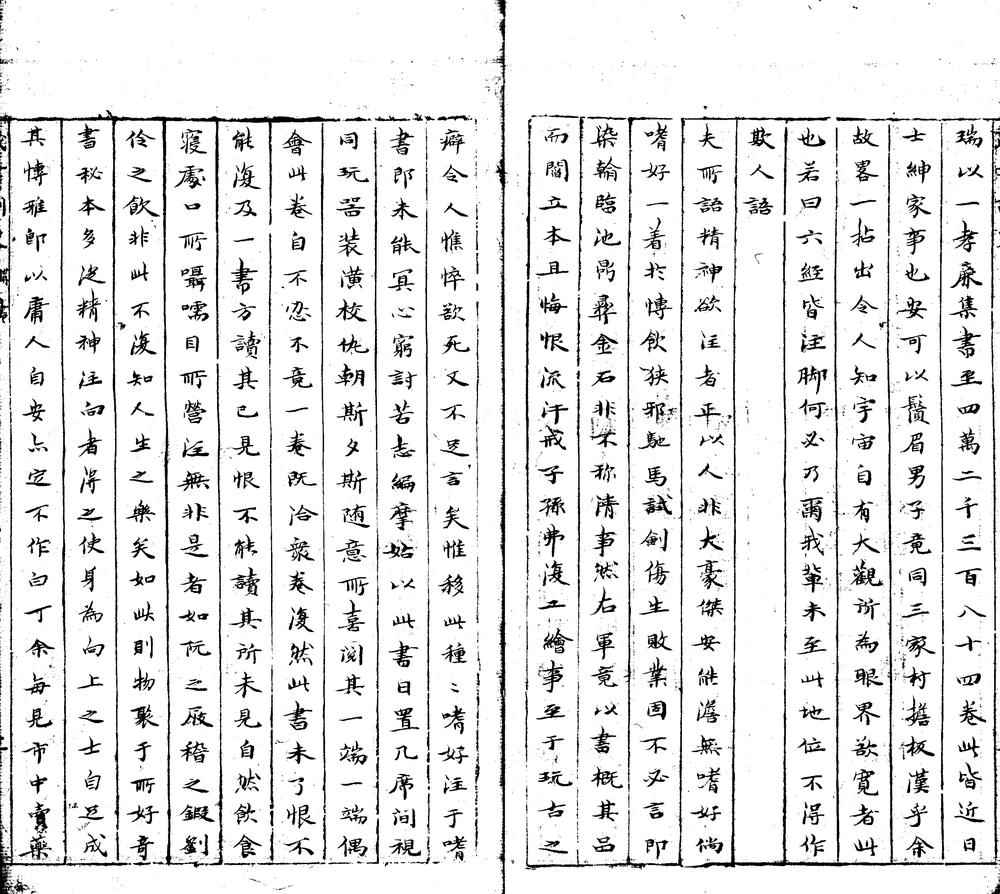 瑞以一孝廉集書至四萬二千三百八十四卷此皆近日
士紳家事也安可以鬚眉男子竟同三家村擔板漢乎余
故畧一拈出令人知宇宙自有大觀所為眼界欲寬者此
也若曰六經皆注脚何必乃爾我輩未至此地位不得作
欺人語
夫所語精神欲注者正以人非大豪傑安能澹無嗜好倘
嗜好一着於博飲狹邪馳馬試劍傷生敗業固不必言即
染翰臨池鼎彝金石非不称清事然右軍竟以書概其品
而閻立本且悔恨流汗戒子孫弗復工繪事至于玩古之
癖令人憔悴欲死又不足言矣惟移此種〻嗜好注于嗜
書郎未能冥心窮討苦志編摩姑以此書日置几席間視
同玩器裝潢校仇朝斯夕斯随意所喜閱其一端一端偶
會此卷自不忍不竟一卷既洽衆卷復然此書未了恨不
能復及一書方讀其已見恨不能讀其所未見自然飲食
寢處口所囁嚅目所營注無非是者如阮之屐稽之鍜劉
伶之飲非此不復知人生之樂矣如此則物聚于所好奇
書秘本多從精神注向者得之使身為向上之士自足成
其愽雅郎以庸人自安点定不作白丁余每見市中賣藥